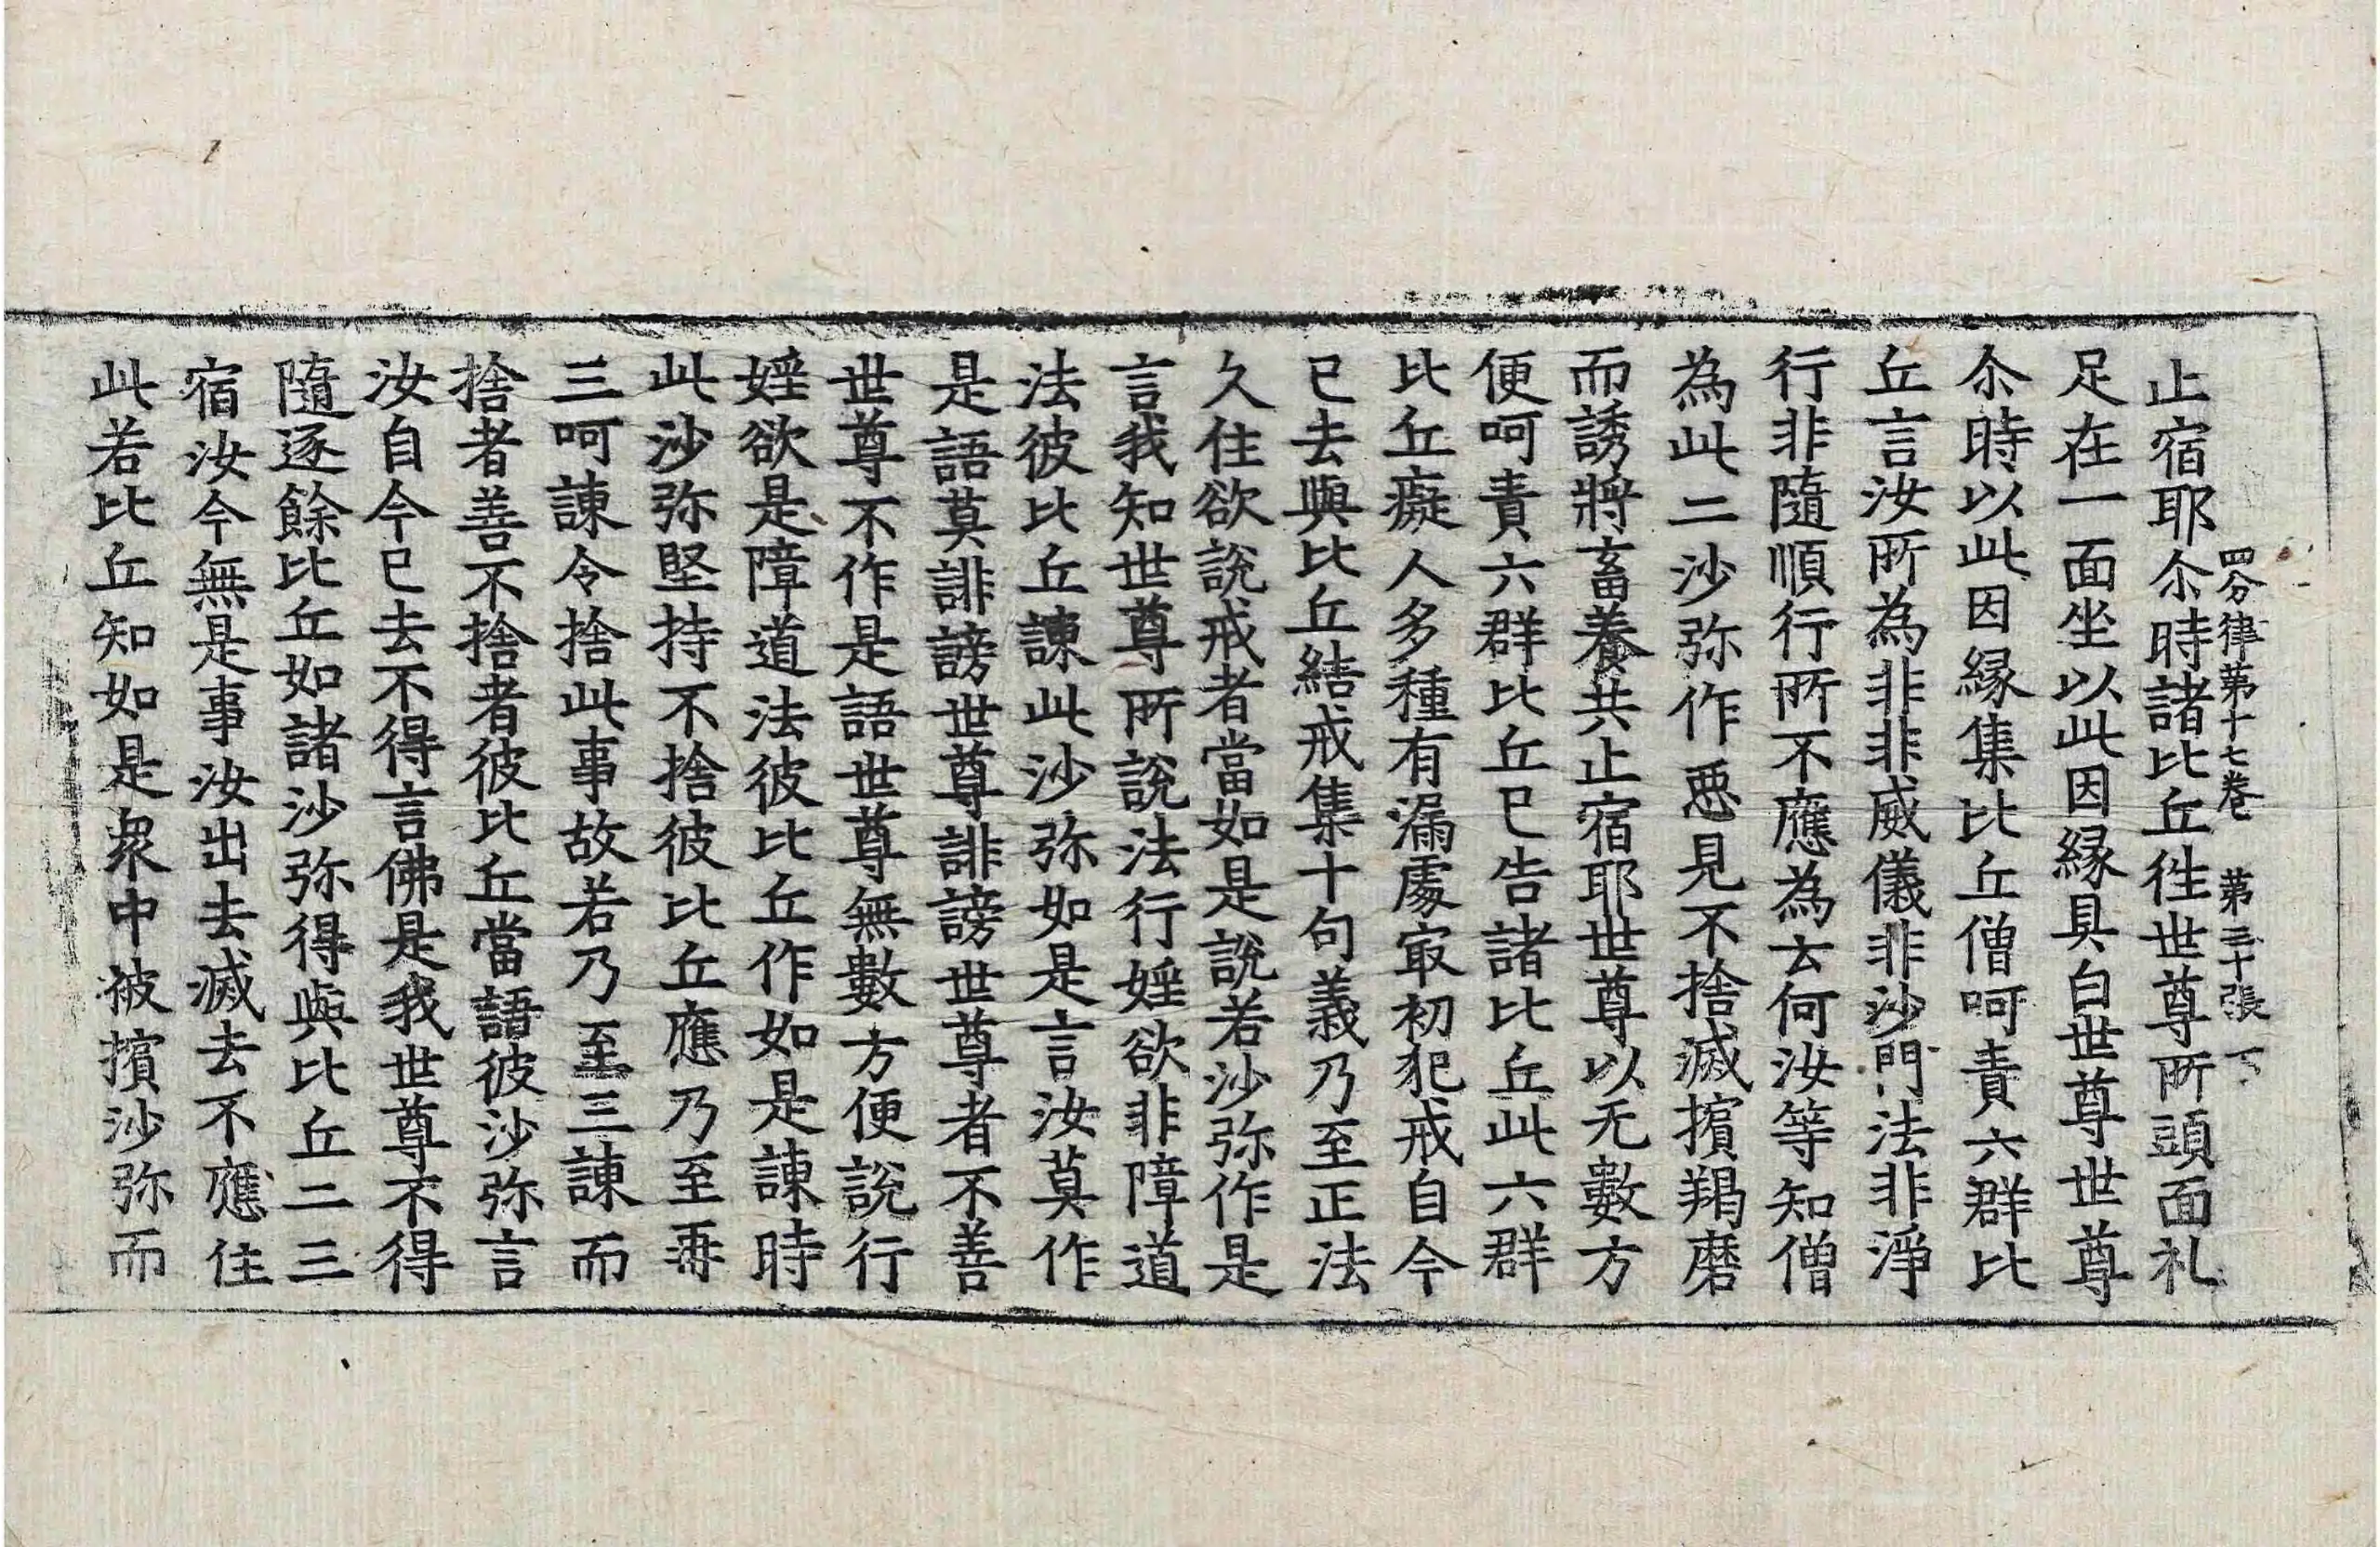 四分律第十七卷 第三十張 下
止宿耶尒時諸比丘徃世尊所頭面礼
足在一面坐以此因縁具白世尊世尊
尒時以此因縁集比丘僧呵責六群比
丘言汝所為非非威儀非沙門法非淨
行非隨順行所不應為云何汝等知僧
為此二沙弥作惡見不捨滅擯羯磨
而誘將畜養共止宿耶世尊以无數方
便呵責六群比丘已告諸比丘此六群
比丘癡人多種有漏處㝡初犯戒自今
已去與比丘結戒集十句義乃至正法
久住欲説戒者當如是説若沙弥作是
言我知世尊所說法行婬欲非障道
法彼比丘諫此沙弥如是言汝莫作
是語莫誹謗世尊誹謗世尊者不善
世尊不作是語世尊無數方便說行
婬欲是障道法彼比丘作如是諫時
此沙弥堅持不捨彼比丘應乃至再
三呵諫令捨此事故若乃至三諫而
捨者善不捨者彼比丘當語彼沙弥言
汝自今已去不得言佛是我世尊不得
隨逐餘比丘如諸沙弥得與比丘二三
宿汝今無是事汝出去滅去不應住
此若比丘知如是衆中被擯沙弥而